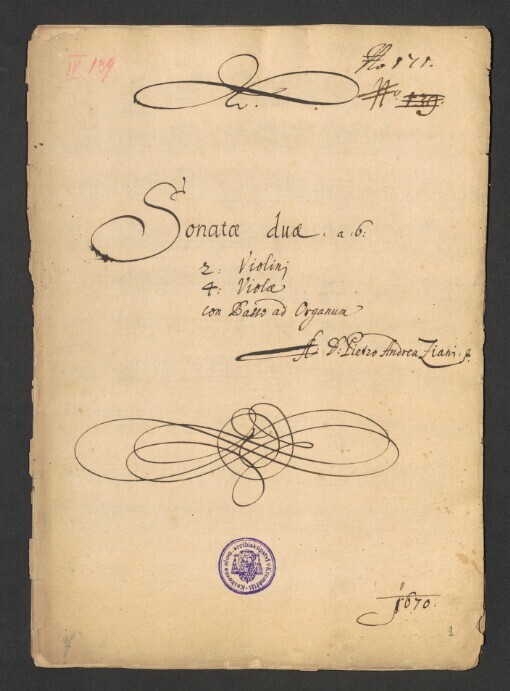 IV. 139
No 171.
No 139.
Sonatæ duæ. a. 6:
2: Violinj
4: Violæ
con Basso ad Organum
A: D: Pietro Andrea Ziani:
1670.
1